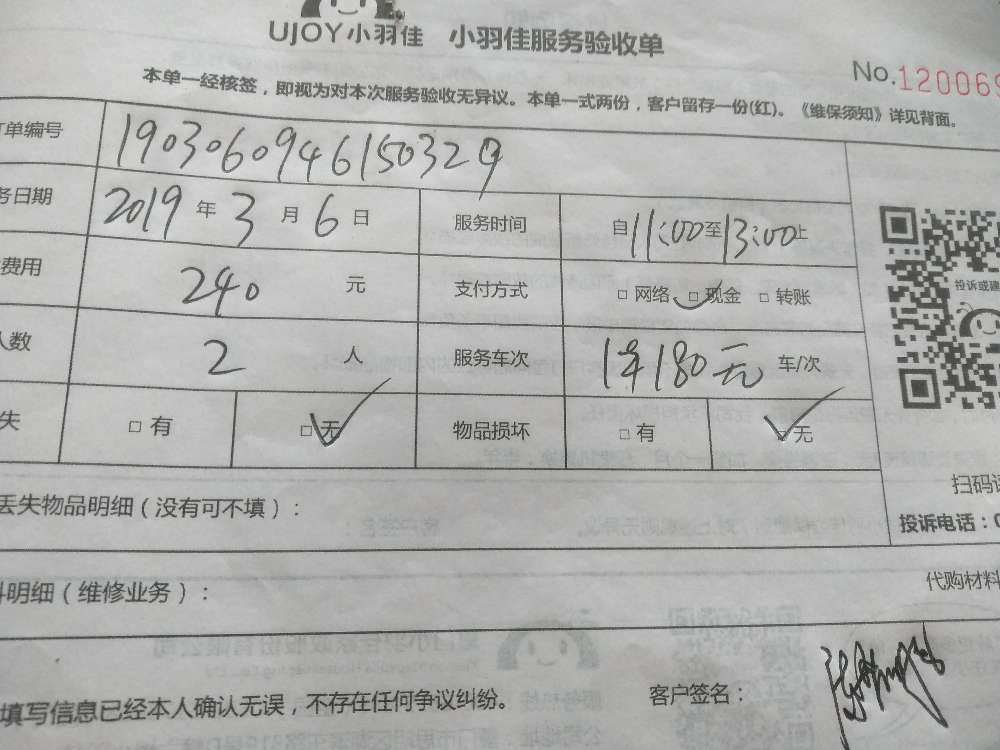 UJOY小羽佳 小羽佳服务验收单
No.120069
本单一经核签，即视为对本次服务验收无异议。本单一式两份，客户留存一份(红)。《维保须知》详见背面。
订单编号 1903060946150329
务日期 2019 年 3 月 6 日 服务时间 自11:00至13:00止
费用 240 元 支付方式 □ 网络 □ 现金 □ 转账
投诉或建
人数 2 人 服务车次 1车180元 车/次
失 □ 有 □ 无 物品损坏 □ 有 □ 无
扫码
丢失物品明细（没有可不填）：
投诉电话：0
料明细（维修业务）：
代购材料
填写信息已经本人确认无误，不存在任何争议纠纷。 客户签名：